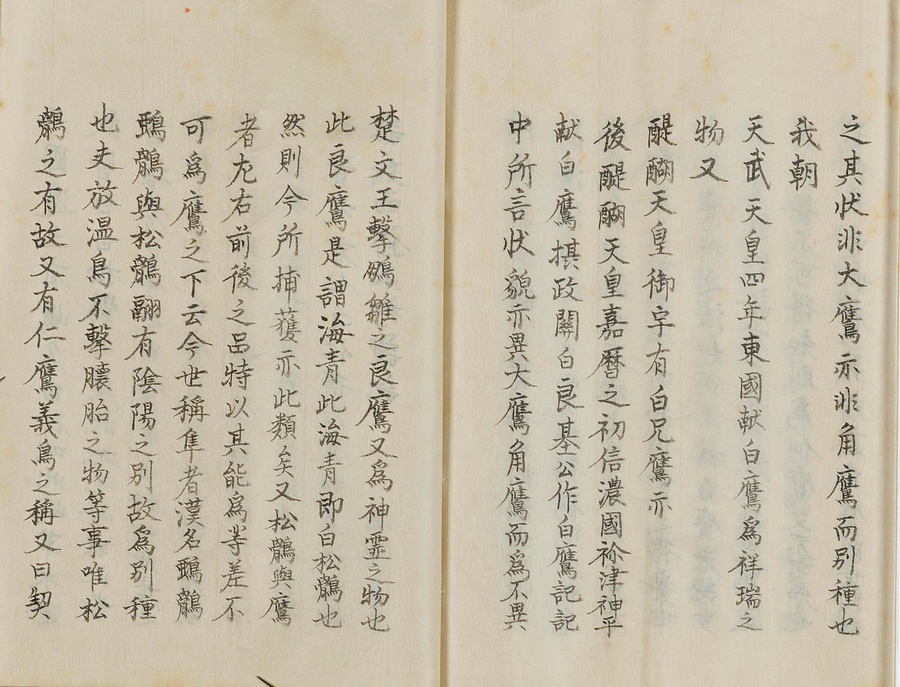 之其状非大鷹亦非角鷹而別種也
我朝
天武天皇四年東國献白鷹為祥瑞之
物又
醍醐天皇御宇有白兄鷹亦
後醍醐天皇嘉暦之初信濃國祢津神平
献白鷹摂政關白良基公作白鷹記記
中所言状貌亦異大鷹角鷹而為不異
楚文王擊鵬雛之良鷹又為神霊之物也
此良鷹是謂海青此海青即白松鶻也
然則今所捕獲亦此類矣又松鶻與鷹
者左右前後之品特以其能為等差不
可為鷹之下云今世稱隼者漢名鵶鶻
鵶鶻與松鶻翮有陰陽之別故為別種
也夫放温鳥不擊臙胎之物等事唯松
鶻之有故又有仁鷹義鳥之稱又曰契